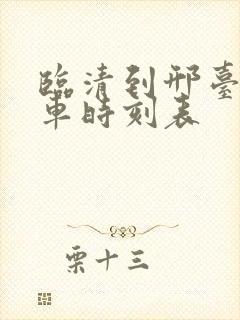 臨清到邢臺
車時刻表
栗十三